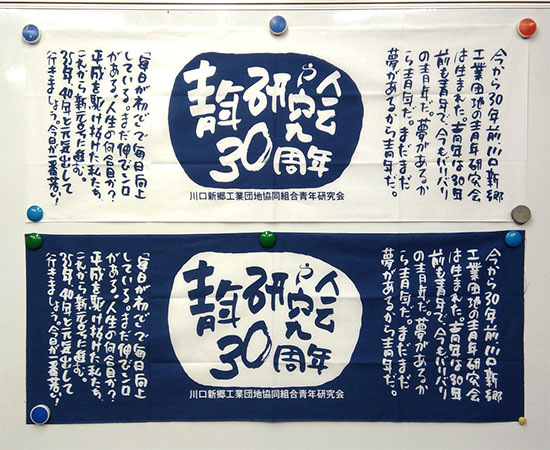 今から30年前川口新郷
工業団地の青年研究会
は生まれた。青年は30年
前も青年で、今もバリバリ
の青年だ。夢があるか
ら青年だ。まだまだ
夢があるから青年だ。
青年研究会
30周年
川口新郷工業団地協同組合青年研究会
「毎日が初心で毎日向上
している。まだ伸びシロ
がある。人生の何合目か?
平成を駆け抜けた私たち、
これから新元号に進む。
35年、40年と元気出して
行きましょう。今日が一番若い!
今から30年前川口新郷
工業団地の青年研究会
は生まれた。青年は30年
前も青年で、今もバリバリ
の青年だ。夢があるか
ら青年だ。まだまだ
夢があるから青年だ。
青年研究会
30周年
川口新郷工業団地協同組合青年研究会
「毎日が初心で毎日向上
している。まだ伸びシロ
がある。人生の何合目か?
平成を駆け抜けた私たち、
これから新元号に進む。
35年、40年と元気出して
行きましょう。今日が一番若い!